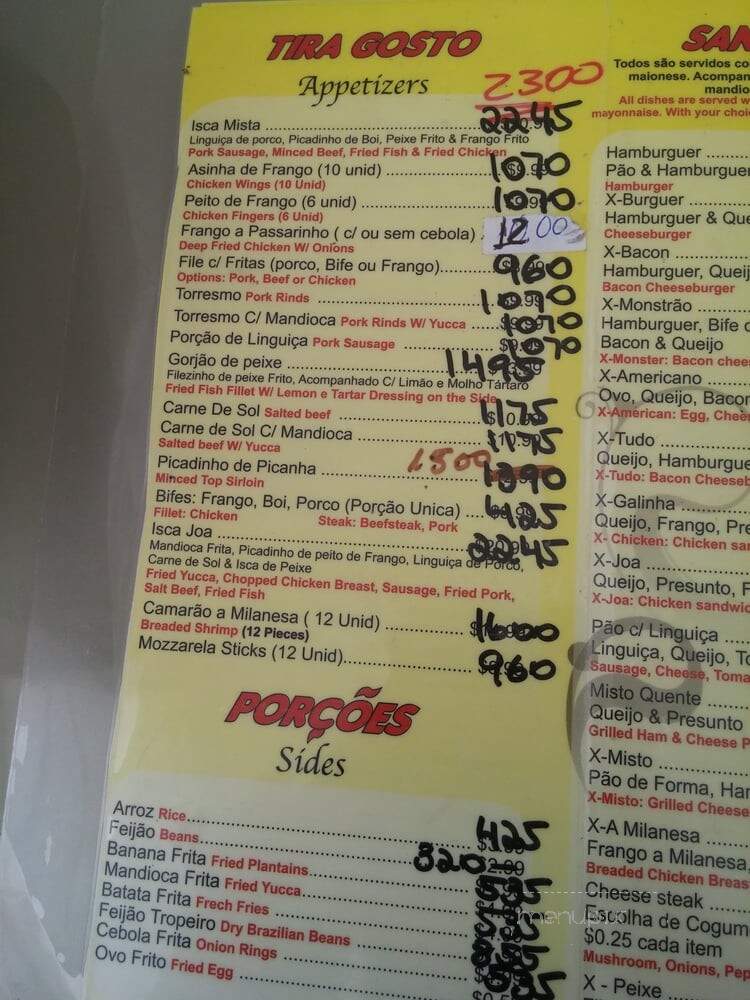 TIRA GOSTO
Appetizers
2300
Isca Mista 2245
Linguiça de porco, Picadinho de Boi, Peixe Frito & Frango Frito
Pork Sausage, Minced Beef, Fried Fish & Fried Chicken
Asinha de Frango (10 unid) 1070
Chicken Wings (10 Unid)
Peito de Frango (6 unid) 1070
Chicken Fingers (6 Unid)
Frango a Passarinho ( c/ ou sem cebola) 12.00
Deep Fried Chicken W/ Onions
File c/ Fritas (porco, Bife ou Frango) 960
Options: Pork, Beef or Chicken
Torresmo Pork Rinds 1070
Torresmo C/ Mandioca Pork Rinds W/ Yucca 1070
Porção de Linguiça Pork Sausage 1070
Gorjão de peixe 1495
Filezinho de peixe Frito, Acompanhado C/ Limão e Molho Tártaro
Fried Fish Fillet W/ Lemon e Tartar Dressing on the Side
Carne De Sol Salted beef 1175
Carne de Sol C/ Mandioca 1175
Salted beef W/ Yucca
Picadinho de Picanha 1500 1390
Minced Top Sirloin
Bifes: Frango, Boi, Porco (Porção Unica)
Fillet: Chicken Steak: Beefsteak, Pork
Isca Joa 2245
Mandioca Frita, Picadinho de peito de Frango, Linguiça de Porco,
Carne de Sol & Isca de Peixe
Fried Yucca, Chopped Chicken Breast, Sausage, Fried Pork,
Salt Beef, Fried Fish
Camarão a Milanesa ( 12 Unid) 1600
Breaded Shrimp (12 Pieces)
Mozzarela Sticks (12 Unid) 960
PORÇÕES
Sides
Arroz Rice 425
Feijão Beans 320
Banana Frita Fried Plantains
Mandioca Frita Fried Yucca
Batata Frita Frech Fries
Feijão Tropeiro Dry Brazilian Beans
Cebola Frita Onion Rings
Ovo Frito Fried Egg
SAN
Todos são servidos co
maionese. Acompan
mandio
All dishes are served w
mayonnaise. With your choi
Hamburguer
Pão & Hamburguer
Hamburger
X-Burguer
Hamburguer & Que
Cheeseburger
X-Bacon
Hamburguer, Queij
Bacon Cheeseburger
X-Monstrão
Hamburguer, Bife d
Bacon & Queijo
X-Monster: Bacon chee
X-Americano
Ovo, Queijo, Bacor
X-American: Egg, Chee
X-Tudo
Queijo, Hamburgue
X-Tudo: Bacon Cheeseb
X-Galinha
Queijo, Frango, Pre
X- Chicken: Chicken san
X-Joa
Queijo, Presunto, F
X-Joa: Chicken sandwic
Pão c/ Linguiça
Linguiça, Queijo, To
Sausage, Cheese, Toma
Misto Quente
Queijo & Presunto
Grilled Ham & Cheese P
X-Misto
Pão de Forma, Har
X-Misto: Grilled Cheese
X-A Milanesa
Frango a Milanesa,
Breaded Chicken Breas
Cheese steak
Escolha de Cogum
$0.25 cada item
Mushroom, Onions, Pep
X - Peixe